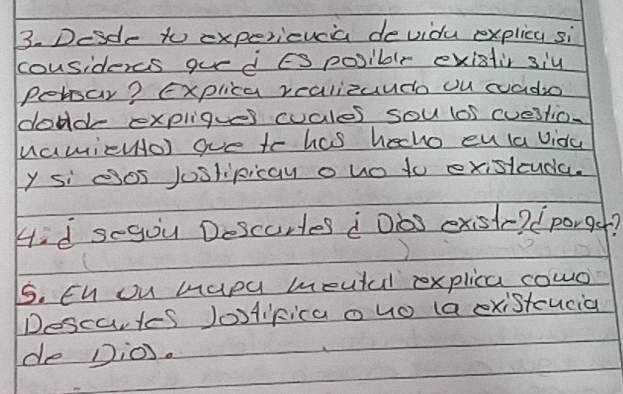 3. Desde tu experiencia de vida explica si
consideras que ¿ Es posible existir sin
pensar? Explica realizando un cuadro
donde expliques cuales son los cuestio-
namientos que te has hecho en la vida
y si esos justifican o no tu existencia.
4. ¿ según Descartes ¿ Dios existe? ¿porqué?
5. En un mapa mental explica como
Descartes Justifica o no la existencia
de Dios.